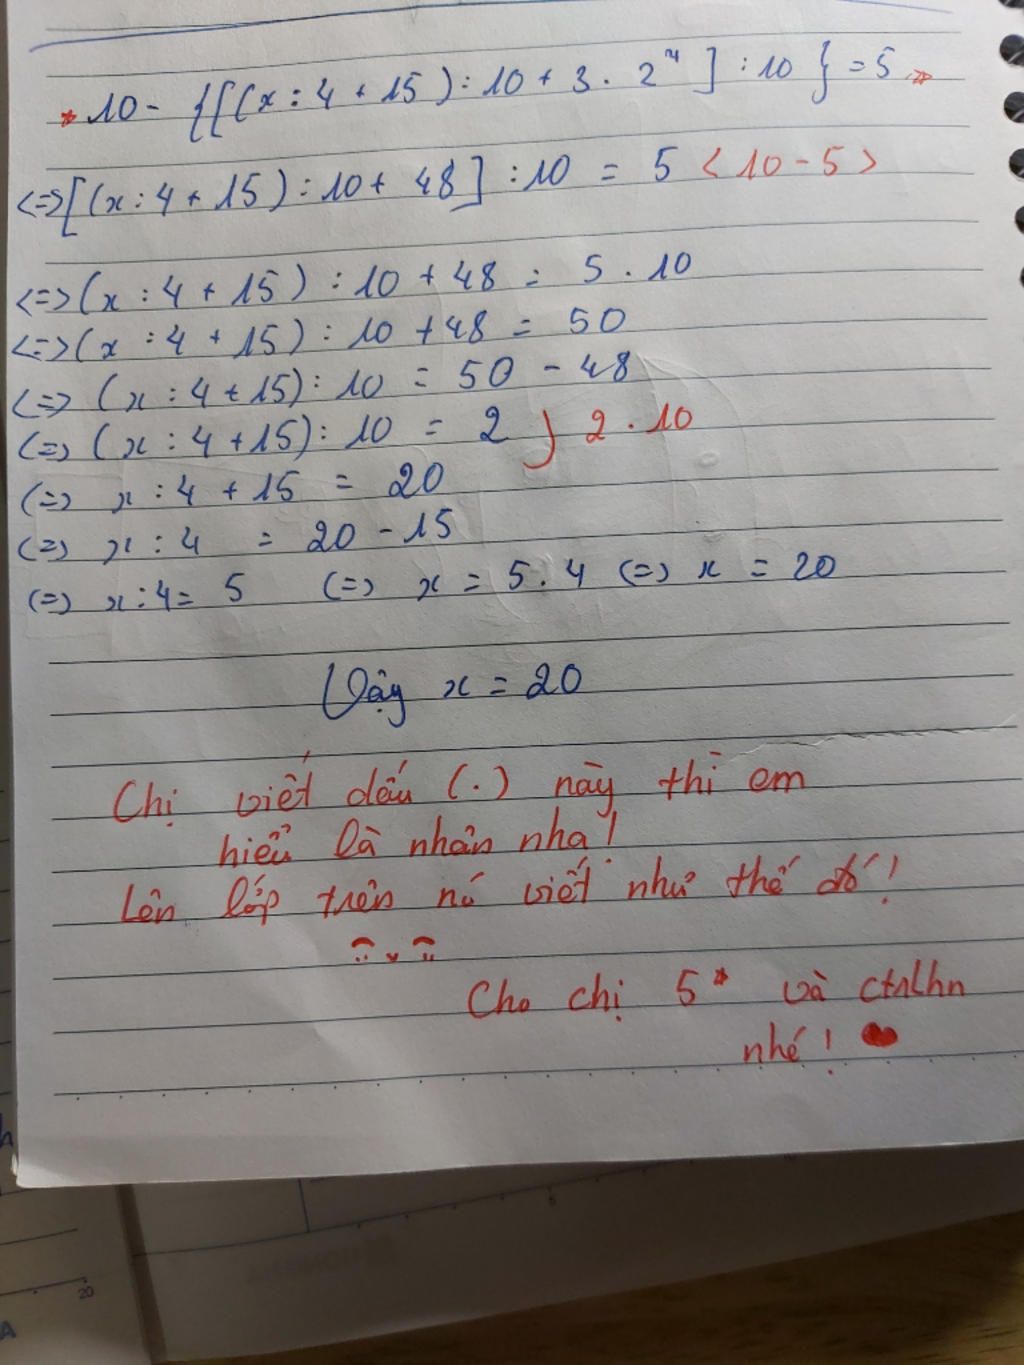 * 10 - {[(x : 4 + 15) : 10 + 3 . 2⁴] : 10} = 5 *
<=> [(x : 4 + 15) : 10 + 48] : 10 = 5 <10 - 5>
<=> (x : 4 + 15) : 10 + 48 = 5 . 10
<=> (x : 4 + 15) : 10 + 48 = 50
<=> (x : 4 + 15) : 10 = 50 - 48
(=> (x : 4 + 15) : 10 = 2 } 2 . 10
(=> x : 4 + 15 = 20
(=> x : 4 = 20 - 15
(=> x : 4 = 5 (=> x = 5 . 4 (=> x = 20
Vậy x = 20
Chị viết dấu (.) này thì em
hiểu là nhân nha !
Lên lớp trên nó viết như thế đó !
Cho chị 5* và ctrlhn
nhé ! ♥
20
A